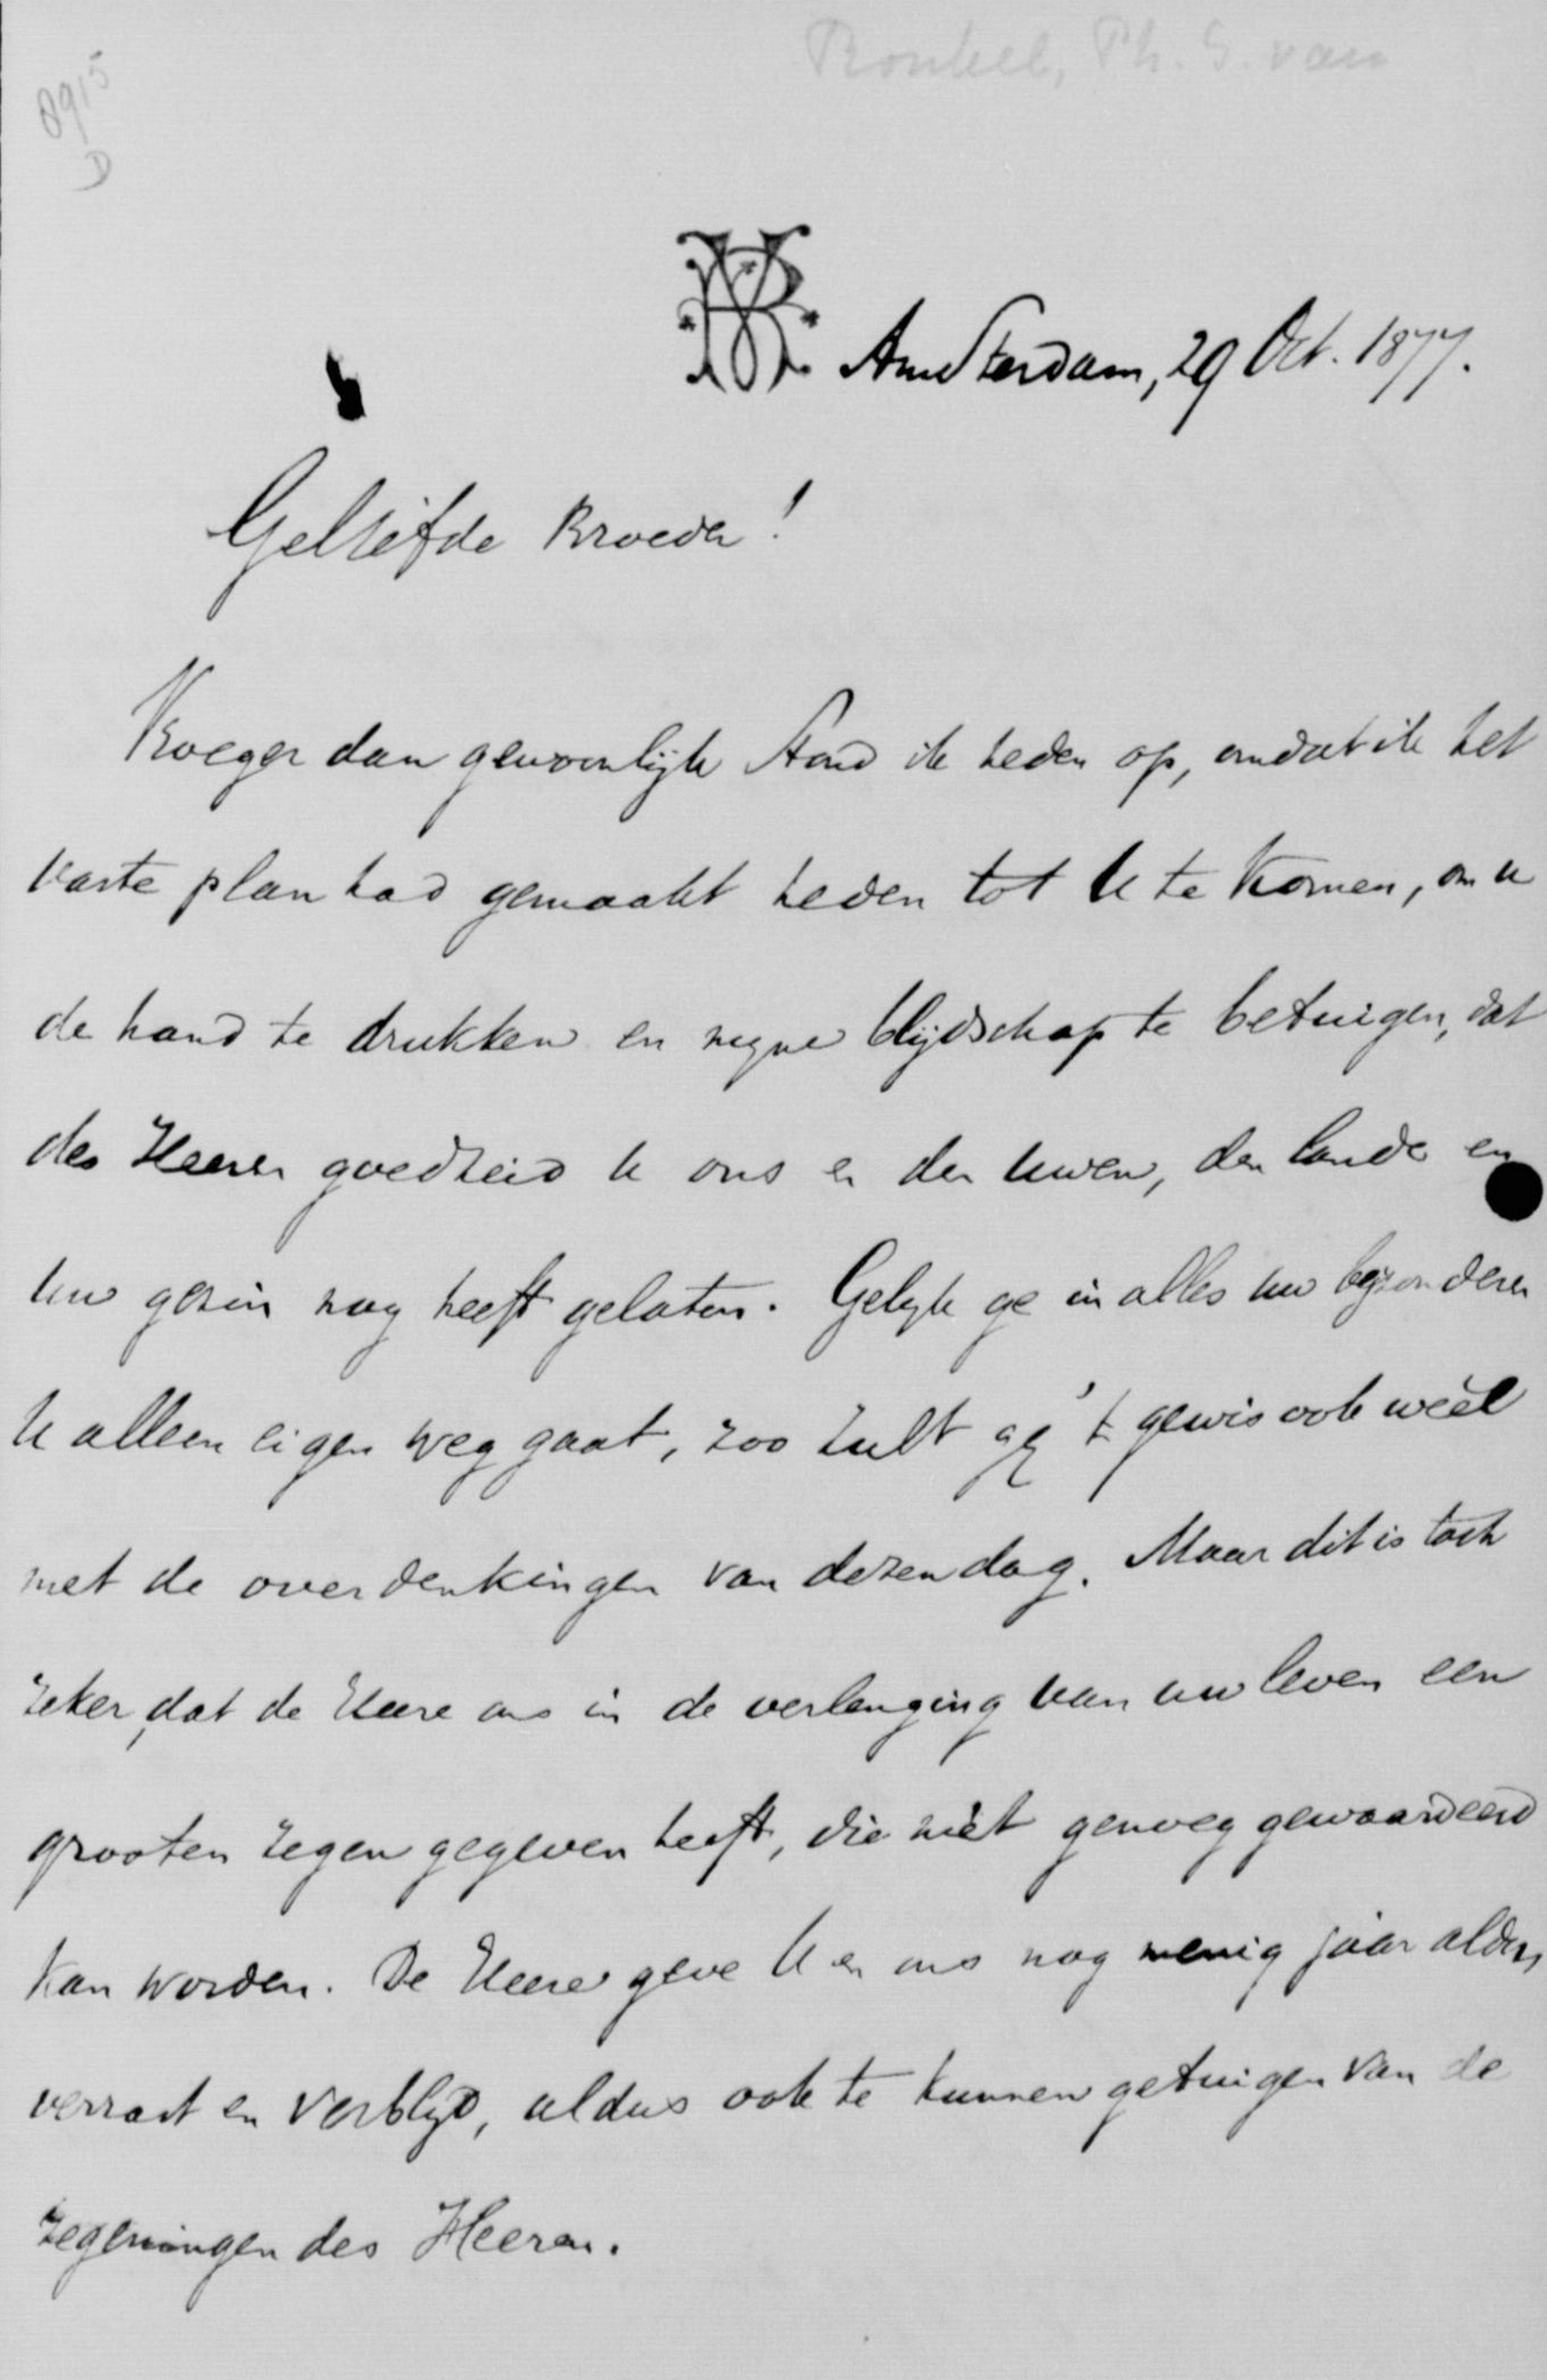 Ronkel, Ph. S. van
0915
D
Amsterdam, 29 Oct. 1877.
Geliefde Broeder!
Vroeger dan gewoonlijk stond ik heden op, omdat ik het
vaste plan had gemaakt heden tot U te komen, om u
de hand te drukken en mijne blijdschap te betuigen, dat
des Heeren goedheid U ons en den uwen, den lande en
uw gezin nog heeft gelaten. Gelijk ge in alles uw bijzonderen
U alleen eigen weg gaat, zoo zult gij 't gewis ook wèl
met de overdenkingen van dezen dag. Maar dit is toch
zeker, dat de Heere ons in de verlenging van uw leven een
grooten zegen gegeven heeft, die niet genoeg gewaardeerd
kan worden. De Heere geve U en ons nog menig jaar aldus,
verrast en verblijd, aldus ook te kunnen getuigen van de
zegeningen des Heeren.